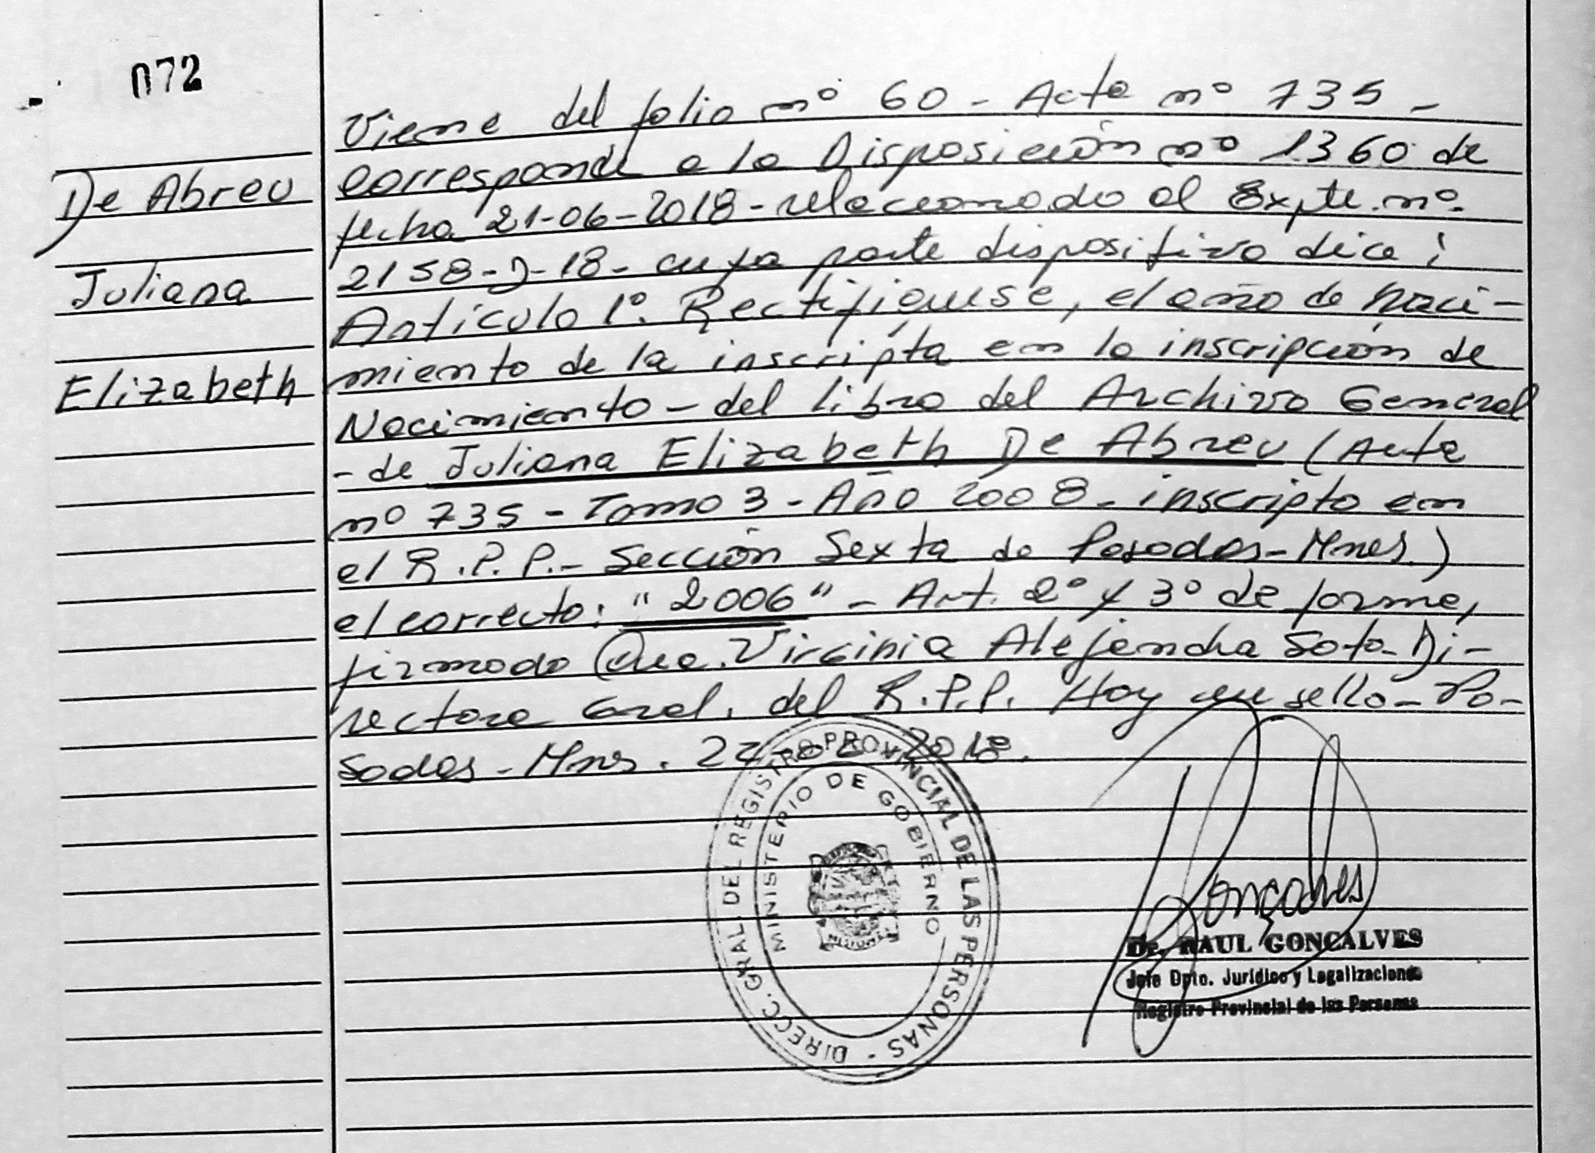 072
De Abreu
Juliana
Elizabeth
Viene del folio nº 60 - Acta nº 735 -
corresponde a la Disposición nº 1360 de
fecha 21-06-2018 - relacionado al Expte. nº.
2158-D-18- cuya parte dispositiva dice:
Artículo 1º. Rectifíquese, el año de naci-
miento de la inscripta en la inscripción de
Nacimiento - del libro del Archivo General
- de Juliana Elizabeth De Abreu (Acta
nº 735 - Tomo 3 - Año 2008 - inscripto en
el R.P.P.- Sección Sexta de Posadas-Mnes.)
el correcto: "2006" - Art. 2º y 3º de forma,
firmado Virginia Alejandra Soto - Di-
rectora Gral. del R.P.P. Hoy un sello - Po-
sadas - Mnes. 2018.
DIRECC. GRAL. DEL REGISTRO PROVINCIAL DE LAS PERSONAS -
MINISTERIO DE GOBIERNO
MISIONES
Gonçalves
Dr. RAUL GONCALVES
Jefe Dpto. Jurídico y Legalizaciones
Registro Provincial de las Personas